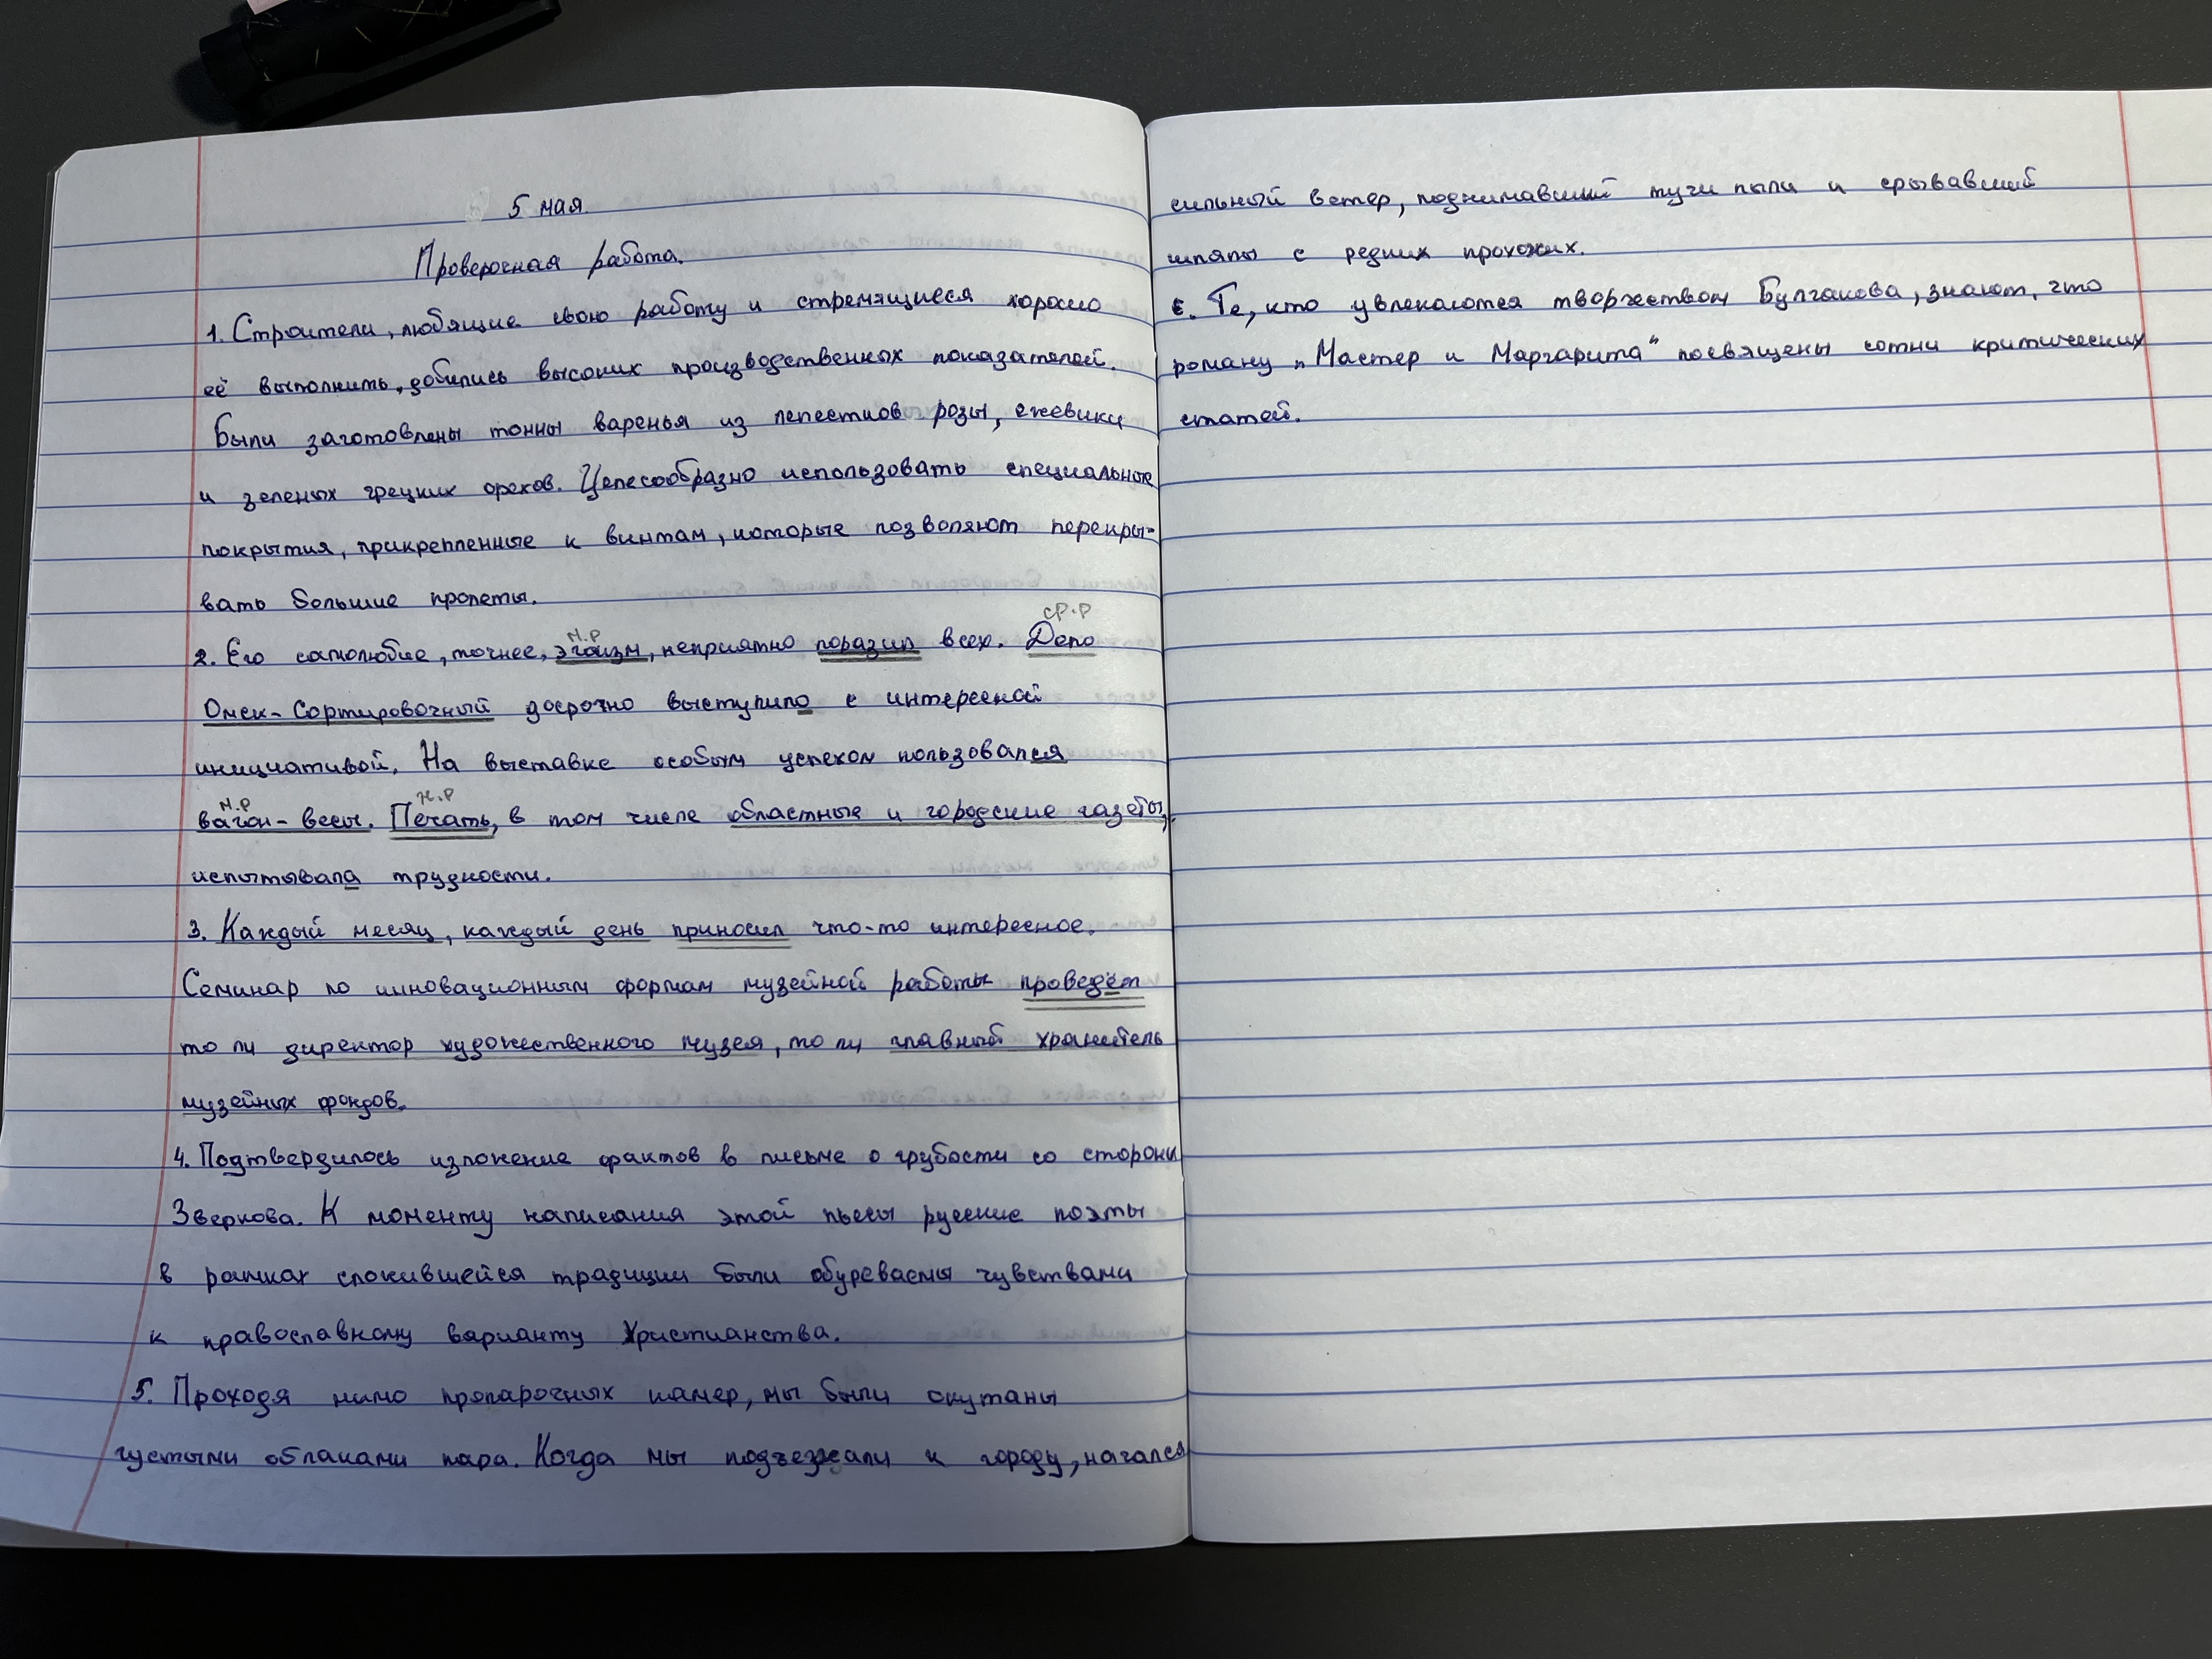 5 мая.
Проверочная работа.
1. Строители, любящие свою работу и стремящиеся хорошо
её выполнить, добились высоких производственных показателей.
Были заготовлены тонны варенья из лепестков розы, ежевики
и зеленых грецких орехов. Целесообразно использовать специальные
покрытия, прикрепленные к винтам, которые позволяют перекры-
вать большие пролеты.
ср.р
м.р
2. Его самолюбие, точнее, эгоизм, неприятно поразил всех. Депо
Омск-Сортировочный досрочно выступило с интересной
инициативой. На выставке особым успехом пользовался
м.р ж.р
вагон-весы. Печать, в том числе областные и городские газеты,
испытывала трудности.
3. Каждый месяц, каждый день приносил что-то интересное.
Семинар по инновационным формам музейной работы проведёт
то ли директор художественного музея, то ли главный хранитель
музейных фондов.
4. Подтвердилось изложение фактов в письме о грубости со стороны
Зверкова. К моменту написания этой пьесы русские поэты
в рамках сложившейся традиции были обуреваемы чувствами
к православному варианту Христианства.
5. Проходя мимо пропарочных камер, мы были окутаны
густыми облаками пара. Когда мы подъезжали к городу, начался
сильный ветер, поднимавший тучи пыли и срывавший
шляпы с редких прохожих.
6. Те, кто увлекаются творчеством Булгакова, знают, что
роману „Мастер и Маргарита“ посвящены сотни критических
статей.